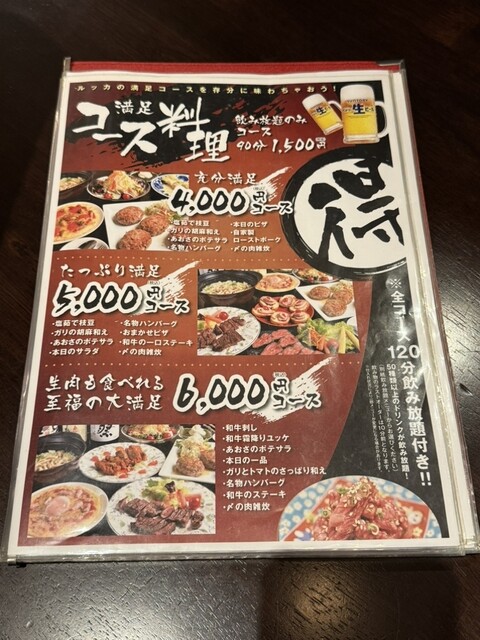 ルッカの満足コースを存分に味わちゃおう!
満足
コース料理
飲み放題のみ
コース
90分1,500円
生
生
得
充分満足
4,000円コース
・塩茹で枝豆
・ガリの胡麻和え
・あおさのポテサラ
・名物ハンバーグ
・本日のピザ
・自家製
ローストポーク
・〆の肉雑炊
たっぷり満足
5,000円コース
・塩茹で枝豆
・ガリの胡麻和え
・あおさのポテサラ
・本日のサラダ
・名物ハンバーグ
・おまかせピザ
・和牛の一口ステーキ
・〆の肉雑炊
生肉も食べれる
至福の大満足
6,000円コース
・和牛刺し
・和牛霜降りユッケ
・あおさのポテサラ
・本日の一品
・ガリとトマトのさっぱり和え
・名物ハンバーグ
・和牛のステーキ
・〆の肉雑炊
※全コース120分飲み放題付き!!
50種類以上のドリンクが飲み放題!
(別紙飲み放題メニューからお選びください)
飲み物のラストオーダーは10分前となります。